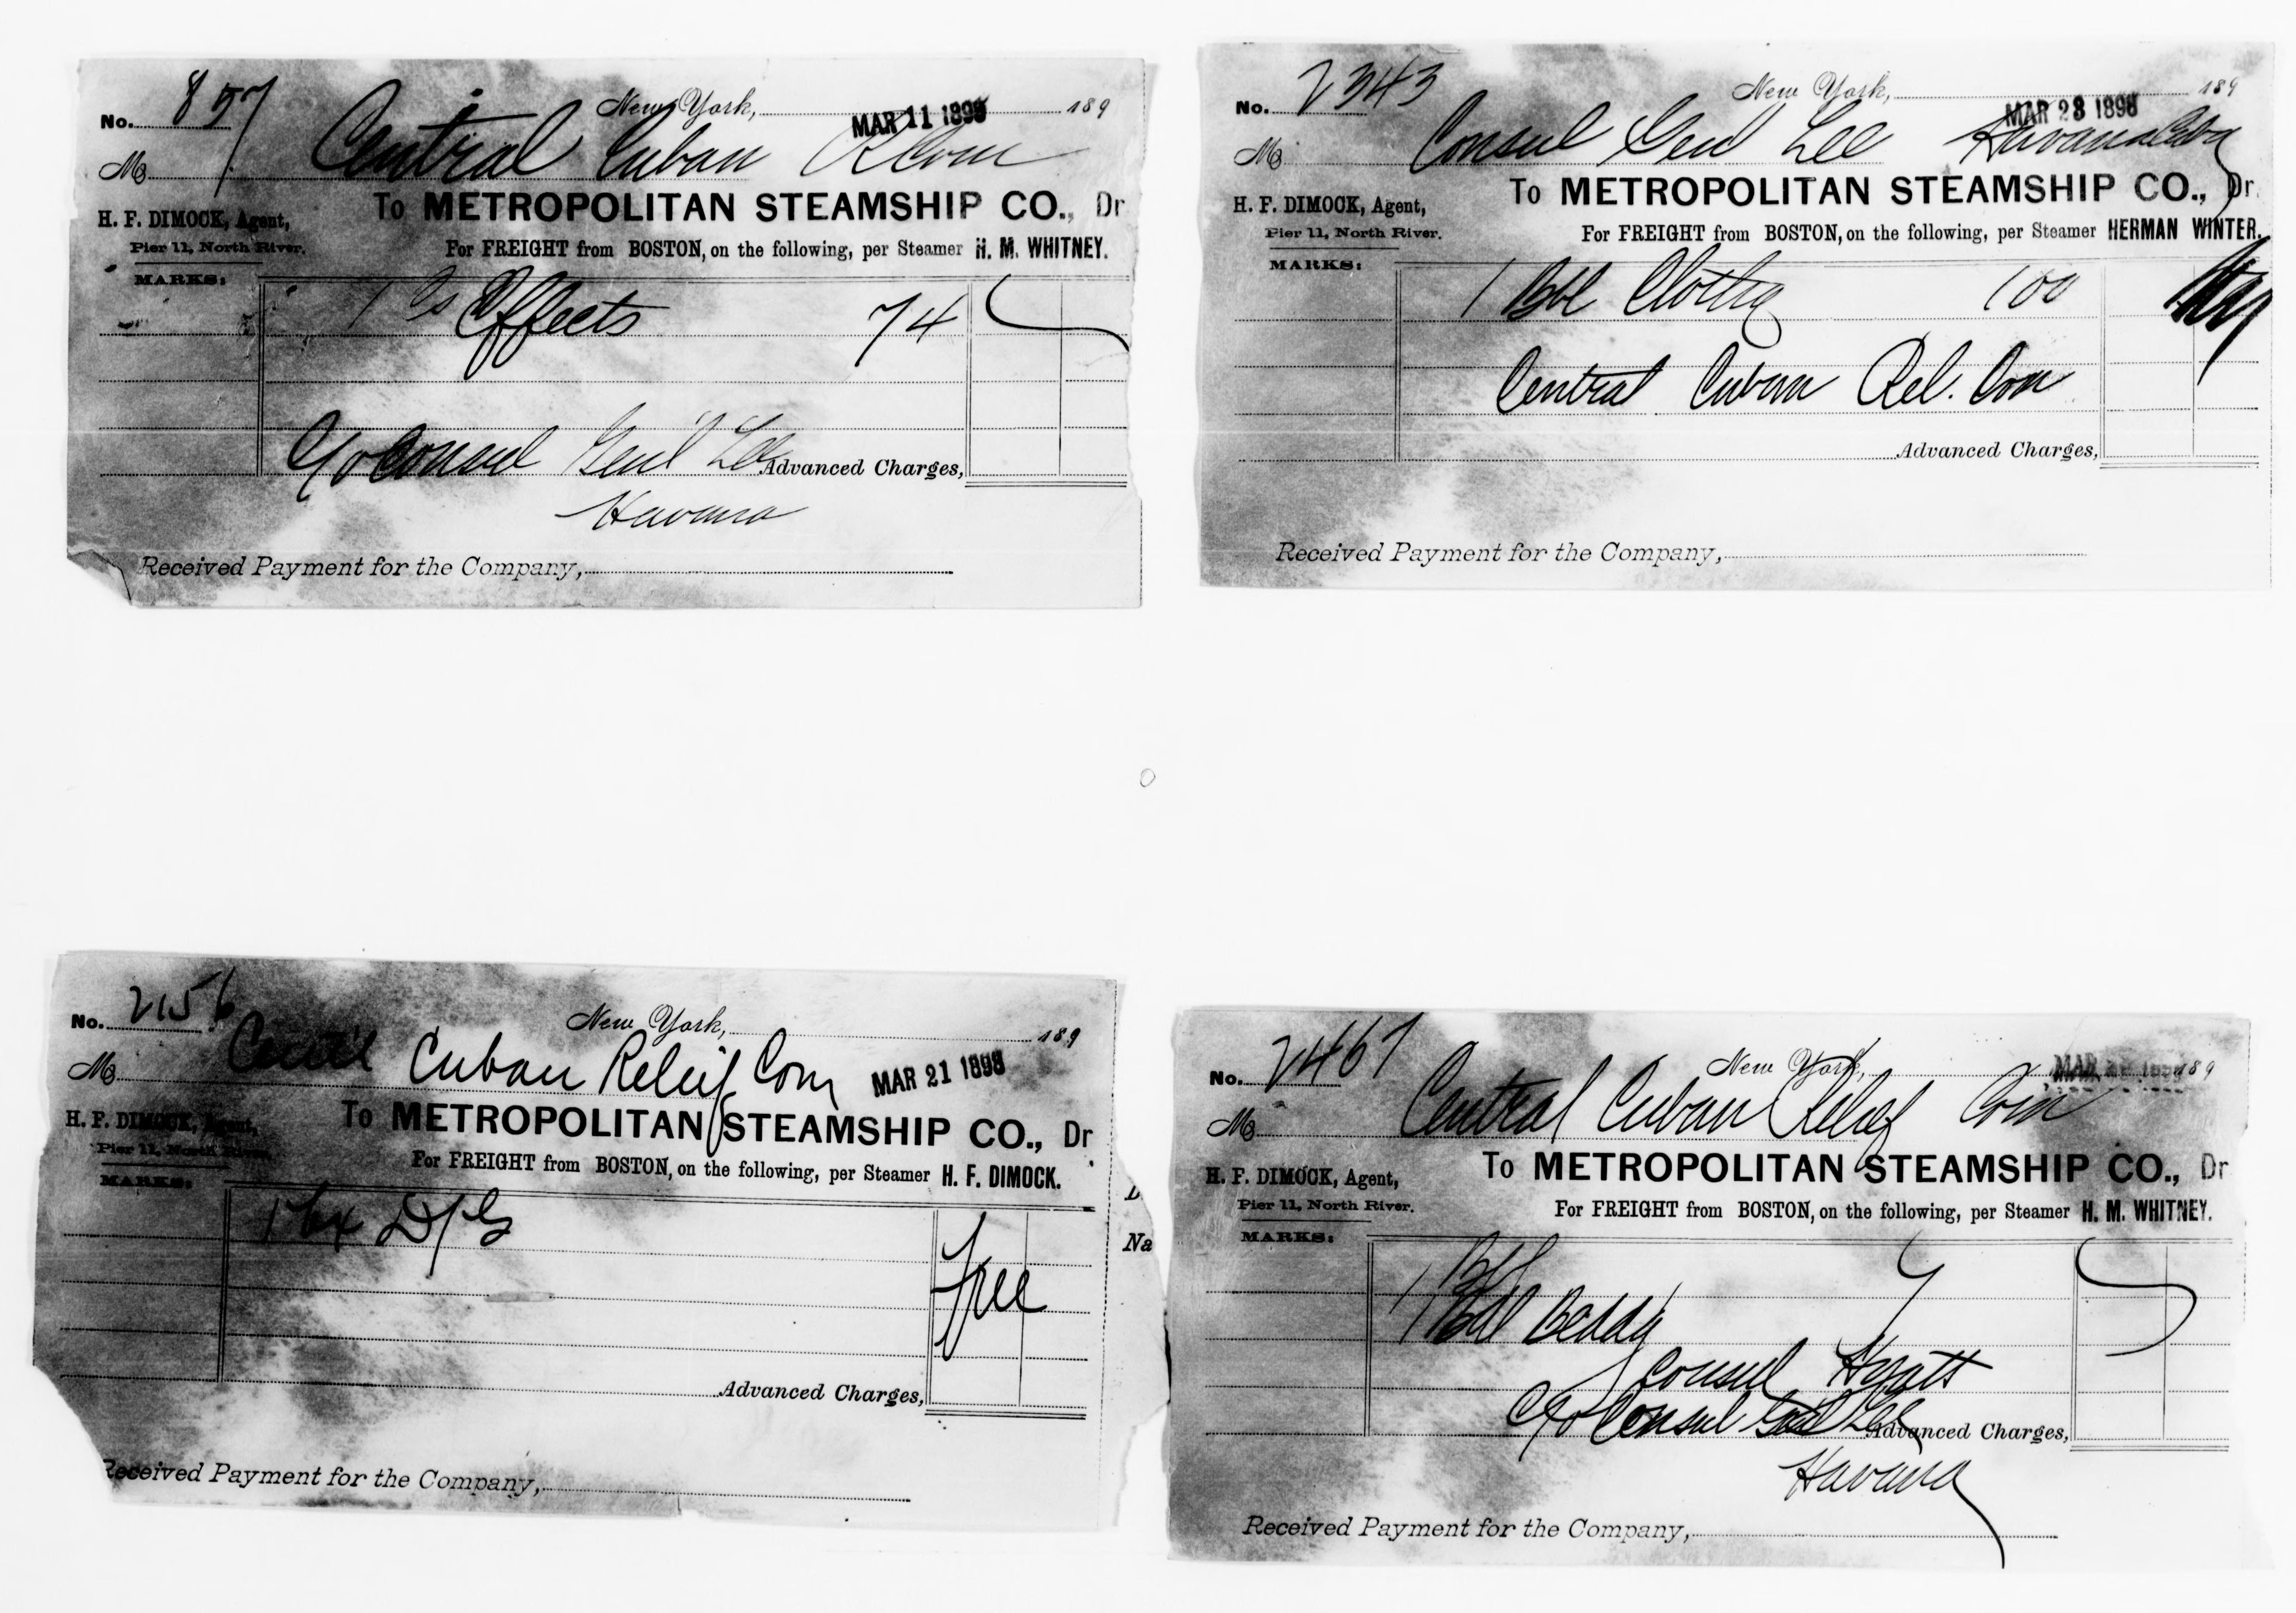 No. 857
New York, MAR 11 1898 189
M Central Cuban R Com
To METROPOLITAN STEAMSHIP CO., Dr
H. F. DIMOCK, Agent,
Pier 11, North River.
For FREIGHT from BOSTON, on the following, per Steamer H. M. WHITNEY.
MARKS:
1 Effects 74
C/o Consul Genl Lee
Advanced Charges,
Havana
Received Payment for the Company,
No. 2343
New York, MAR 23 1898 189
M Consul Genl Lee Havana Cuba
To METROPOLITAN STEAMSHIP CO., Dr.
H. F. DIMOCK, Agent,
Pier 11, North River.
For FREIGHT from BOSTON, on the following, per Steamer HERMAN WINTER.
MARKS:
1 Bbl Clothg 100
Central Cuban Rel. Com
Advanced Charges,
Received Payment for the Company,
No. 2156
New York, 189
M Centl Cuban Releif Com MAR 21 1898
To METROPOLITAN STEAMSHIP CO., Dr
H. F. DIMOCK, Agent,
Pier 11, North River.
For FREIGHT from BOSTON, on the following, per Steamer H. F. DIMOCK.
MARKS:
1 bx D/G
free
Advanced Charges,
Received Payment for the Company,
Na
No. 2467
New York, MAR 1898 189
M Central Cuban Relief Com
To METROPOLITAN STEAMSHIP CO., Dr
H. F. DIMOCK, Agent,
Pier 11, North River.
For FREIGHT from BOSTON, on the following, per Steamer H. M. WHITNEY.
MARKS:
1 Bdl Beddg
Consul Hyatt
C/o Consul Genl Lee
Advanced Charges,
Havana
Received Payment for the Company,